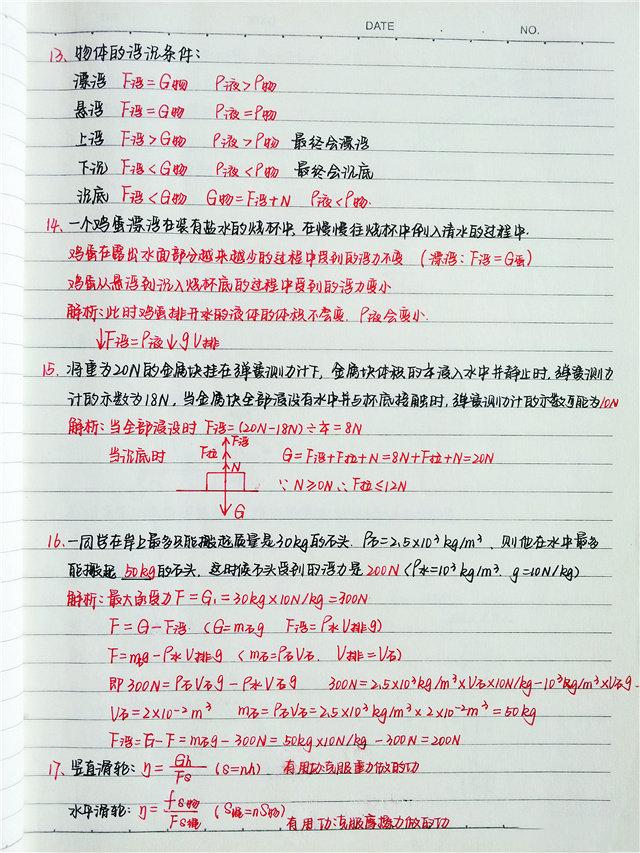 DATE
NO.
13、物体的浮沉条件：
漂浮 F浮=G物 ρ液>ρ物
悬浮 F浮=G物 ρ液=ρ物
上浮 F浮>G物 ρ液>ρ物 最终会漂浮
下沉 F浮<G物 ρ液<ρ物 最终会沉底
沉底 F浮<G物 G物=F浮+N ρ液<ρ物
14、一个鸡蛋漂浮在装有盐水的烧杯中，在慢慢往烧杯中倒入清水的过程中.
鸡蛋在露出水面部分越来越少的过程中受到的浮力不变 (漂浮：F浮=G蛋)
鸡蛋从悬浮到沉入烧杯底的过程中受到的浮力变小
解析：此时鸡蛋排开水的液体的体积不会变，ρ液会变小.
↓F浮=ρ液↓gV排
15、将重为20N的金属块挂在弹簧测力计下，金属块体积的 浸入水中并静止时，弹簧测力
计的示数为18N，当金属块全部浸没有水中并与杯底接触时，弹簧测力计的示数可能为10N
解析：当全部浸没时 F浮=(20N-18N)÷ =8N
当沉底时
F浮
F拉
N
G
G=F浮+F拉+N=8N+F拉+N=20N
∵N≥0N ∴F拉≤12N
16、一同学在岸上最多只能搬起质量是30kg的石头，ρ石=2.5×10³kg/m³，则他在水中最多
能搬起 50kg的石头，这时候石头受到的浮力是200N (ρ水=10³kg/m³. g=10N/kg)
解析：最大承受力F=G₁=30kg×10N/kg=300N
F=G-F浮 (G=m石g F浮=ρ水V排g)
F=m石g-ρ水V排g (m石=ρ石V石. V排=V石)
即300N=ρ石V石g-ρ水V石g 300N=2.5×10³kg/m³×V石×10N/kg-10³kg/m³×V石g.
V石=2×10⁻²m³ m石=ρ石V石=2.5×10³kg/m³×2×10⁻²m³=50kg
F浮=G-F=m石g-300N=50kg×10N/kg-300N=200N
17、竖直滑轮：η=Gh/Fs (s=nh) 有用功克服重力做的功
水平滑轮：η=fs物/Fs绳 (s绳=ns物) 有用功克服摩擦力做的功